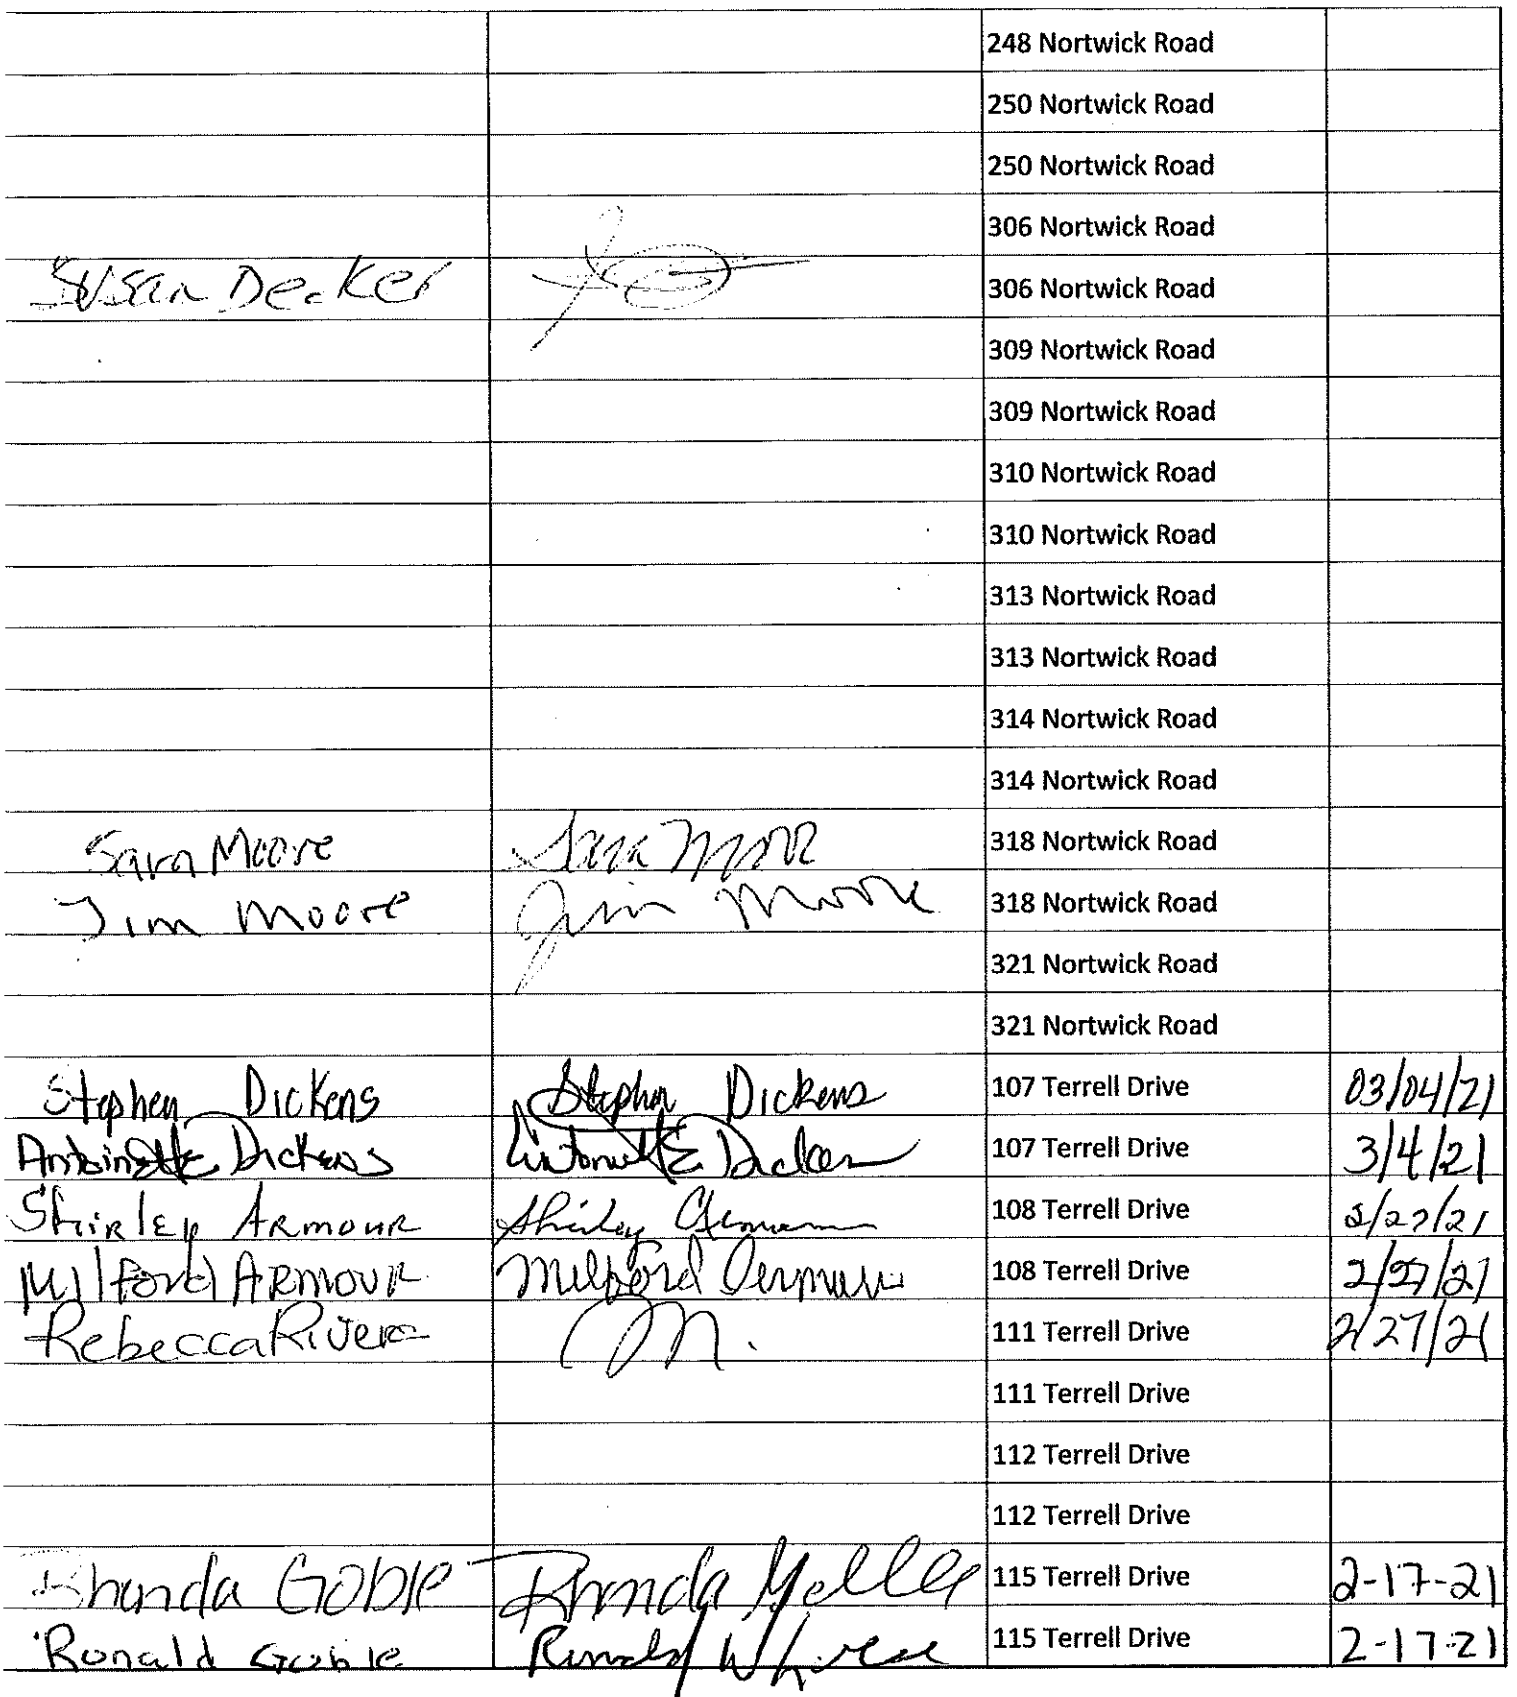 248 Nortwick Road
250 Nortwick Road
250 Nortwick Road
306 Nortwick Road
Susan Decker 306 Nortwick Road
309 Nortwick Road
309 Nortwick Road
310 Nortwick Road
310 Nortwick Road
313 Nortwick Road
313 Nortwick Road
314 Nortwick Road
314 Nortwick Road
Sara Moore Sara Moore 318 Nortwick Road
Jim Moore Jim Moore 318 Nortwick Road
321 Nortwick Road
321 Nortwick Road
Stephen Dickens Stephen Dickens 107 Terrell Drive 03/04/21
Antoinette Dickens Antoinette Dickens 107 Terrell Drive 3/4/21
Shirley Armour Shirley Armour 108 Terrell Drive 2/27/21
Milford Armour Milford Armour 108 Terrell Drive 2/27/21
Rebecca Rivera 111 Terrell Drive 2/27/21
111 Terrell Drive
112 Terrell Drive
112 Terrell Drive
Rhonda Goble Rhonda 115 Terrell Drive 2-17-21
Ronald Goble Ronald 115 Terrell Drive 2-17-21